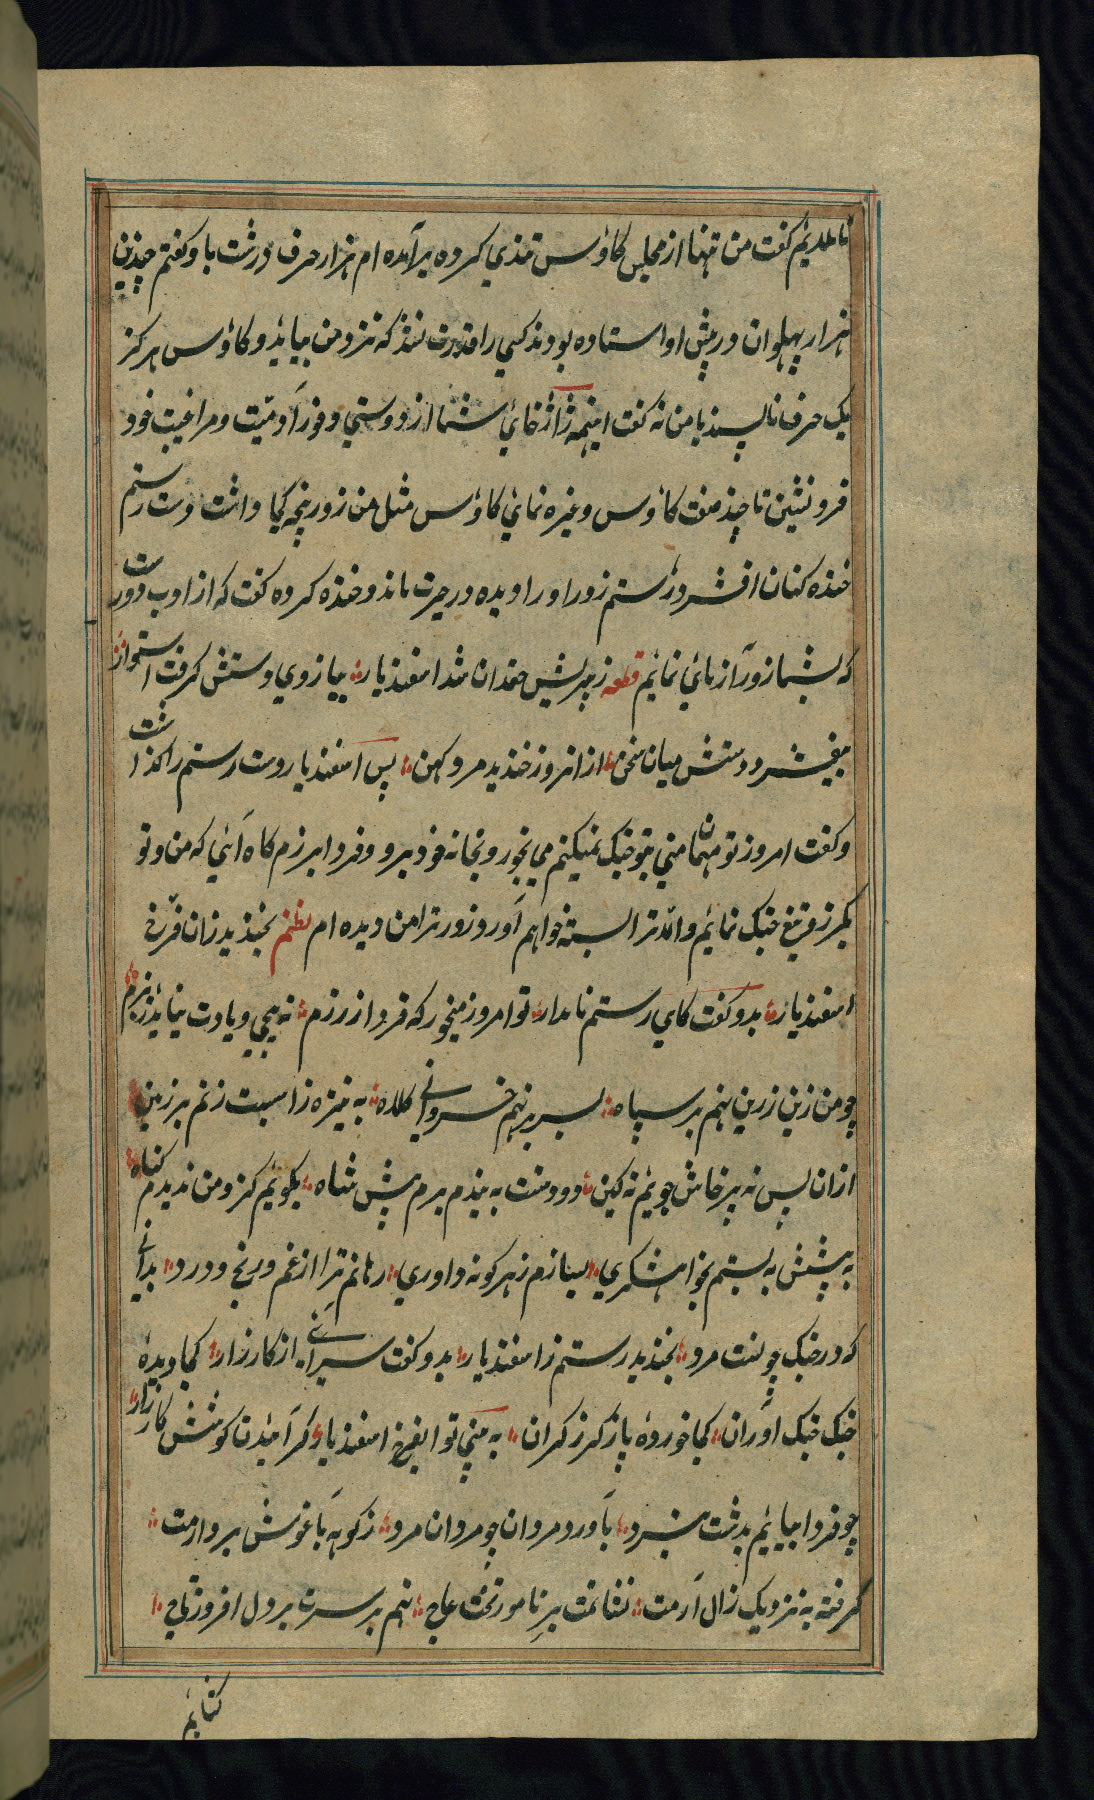 نامداریم گفت من تنها از مجلس کاوس تندی کرده برآمده ام هزار حرف درشت باو گفتم چندین
هزار پهلوان در پیش او استاده بودند کسی را قدرت نشد که نزد من بیاید و کاوس هرگز
یک حرف ناپسند با من نه گفت اینهمه ژاژخائی شما از دوستی دور از آدمیت و مراغیب خود
فرونشین تا چند منت کاوس و غیره نمایی کاوس مثل من زور پنجه کجا داشت دست رستم
خنده کنان افشرد رستم زور او را دیده در حیرت ماند و خنده کرده گفت که از ادب دورست
که بشما زورآزمائی نمائیم قطعه ز پیریش خندان شد اسفندیار بیازوی دستش گرفت استوار
بیفشرد دستش میان سخن از انروز خندید مرد کهن پس اسفندیار دست رستم را گذاشت
و گفت امروز تو مهمان منی بتو جنگ نمیکنم می بخور و بخانه خود برو و فردا برزم گاه آئی که من و تو
بگرز و تیغ جنگ نمائیم والله ترا البته خواهم آورد زور ترا من دیده ام نظم بخندید زان فرّخ
اسفندیار بدو گفت کای رستم نامدار تو امروز میخور که فردا ز رزم نه پیچی و یادت نیاید ز بزم
چو من زین زرین نهم بر سپاه بسر بر نهم خسروانی کلاه به نیزه ز اسبت زنم بر زمین
ازان پس نه پرخاش جویم نه کین دو دستت به بندم برم پیش شاه بگویم کزو من ندیدم گناه
به پیشش به بستم بخواهشگری بسازم ز هرگونه داوری رهانم ترا از غم و رنج و درد بدانی
که در جنگ چونست مرد بخندید رستم ز اسفندیار بدو گفت سیرآئی از کارزار کجا دیدهٔ
جنگ جنگ آوران کجا خوردهٔ باز گرز گران به بینی تو ای فرخ اسفندیار گرآئیدن کوشش کارزار
چو فردا بیائیم بدشت نبرد بآورد مردان چو مردان مرد ز کوهه بآغوش بردارمت
گرفته به نزدیک زال آرمت نشانمت بر نامور تخت عاج نهم بر سرت بر دل افروز تاج
کشایم